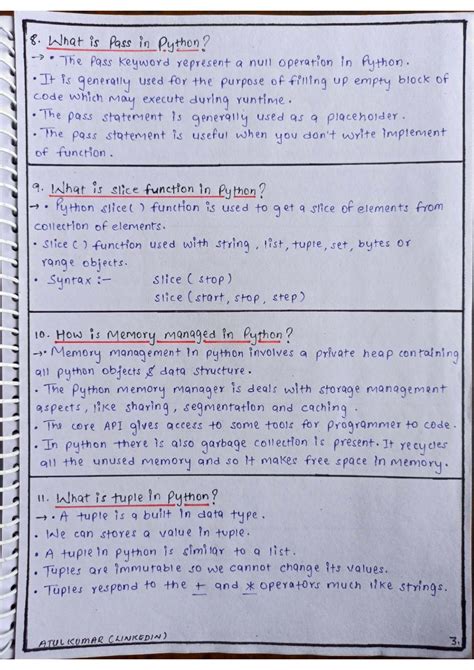 8. What is Pass in Python?
→ • The Pass keyword represent a null operation in Python.
• It is generally used for the purpose of filling up empty block of
code which may execute during runtime.
• The pass statement is generally used as a placeholder.
• The pass statement is useful when you don't write implement
of function.
9. What is slice function in Python?
→ • Python slice( ) function is used to get a slice of elements from
collection of elements.
• Slice ( ) function used with string, list, tuple, set, bytes or
range objects.
• Syntax :- slice ( stop )
slice ( start, stop, step )
10. How is Memory managed in Python?
→ • Memory management in python involves a private heap containing
all python objects & data structure.
• The Python memory manager is deals with storage management
aspects, like sharing, segmentation and caching.
• The core API gives access to some tools for programmer to code.
• In python there is also garbage collection is present. It recycles
all the unused memory and so it makes free space in memory.
11. What is tuple in Python?
→ • A tuple is a built in data type.
• We can stores a value in tuple.
• A tuple in python is similar to a list.
• Tuples are immutable so we cannot change its values.
• Tuples respond to the + and * operators much like strings.
ATUL KUMAR (LINKEDIN)
3.